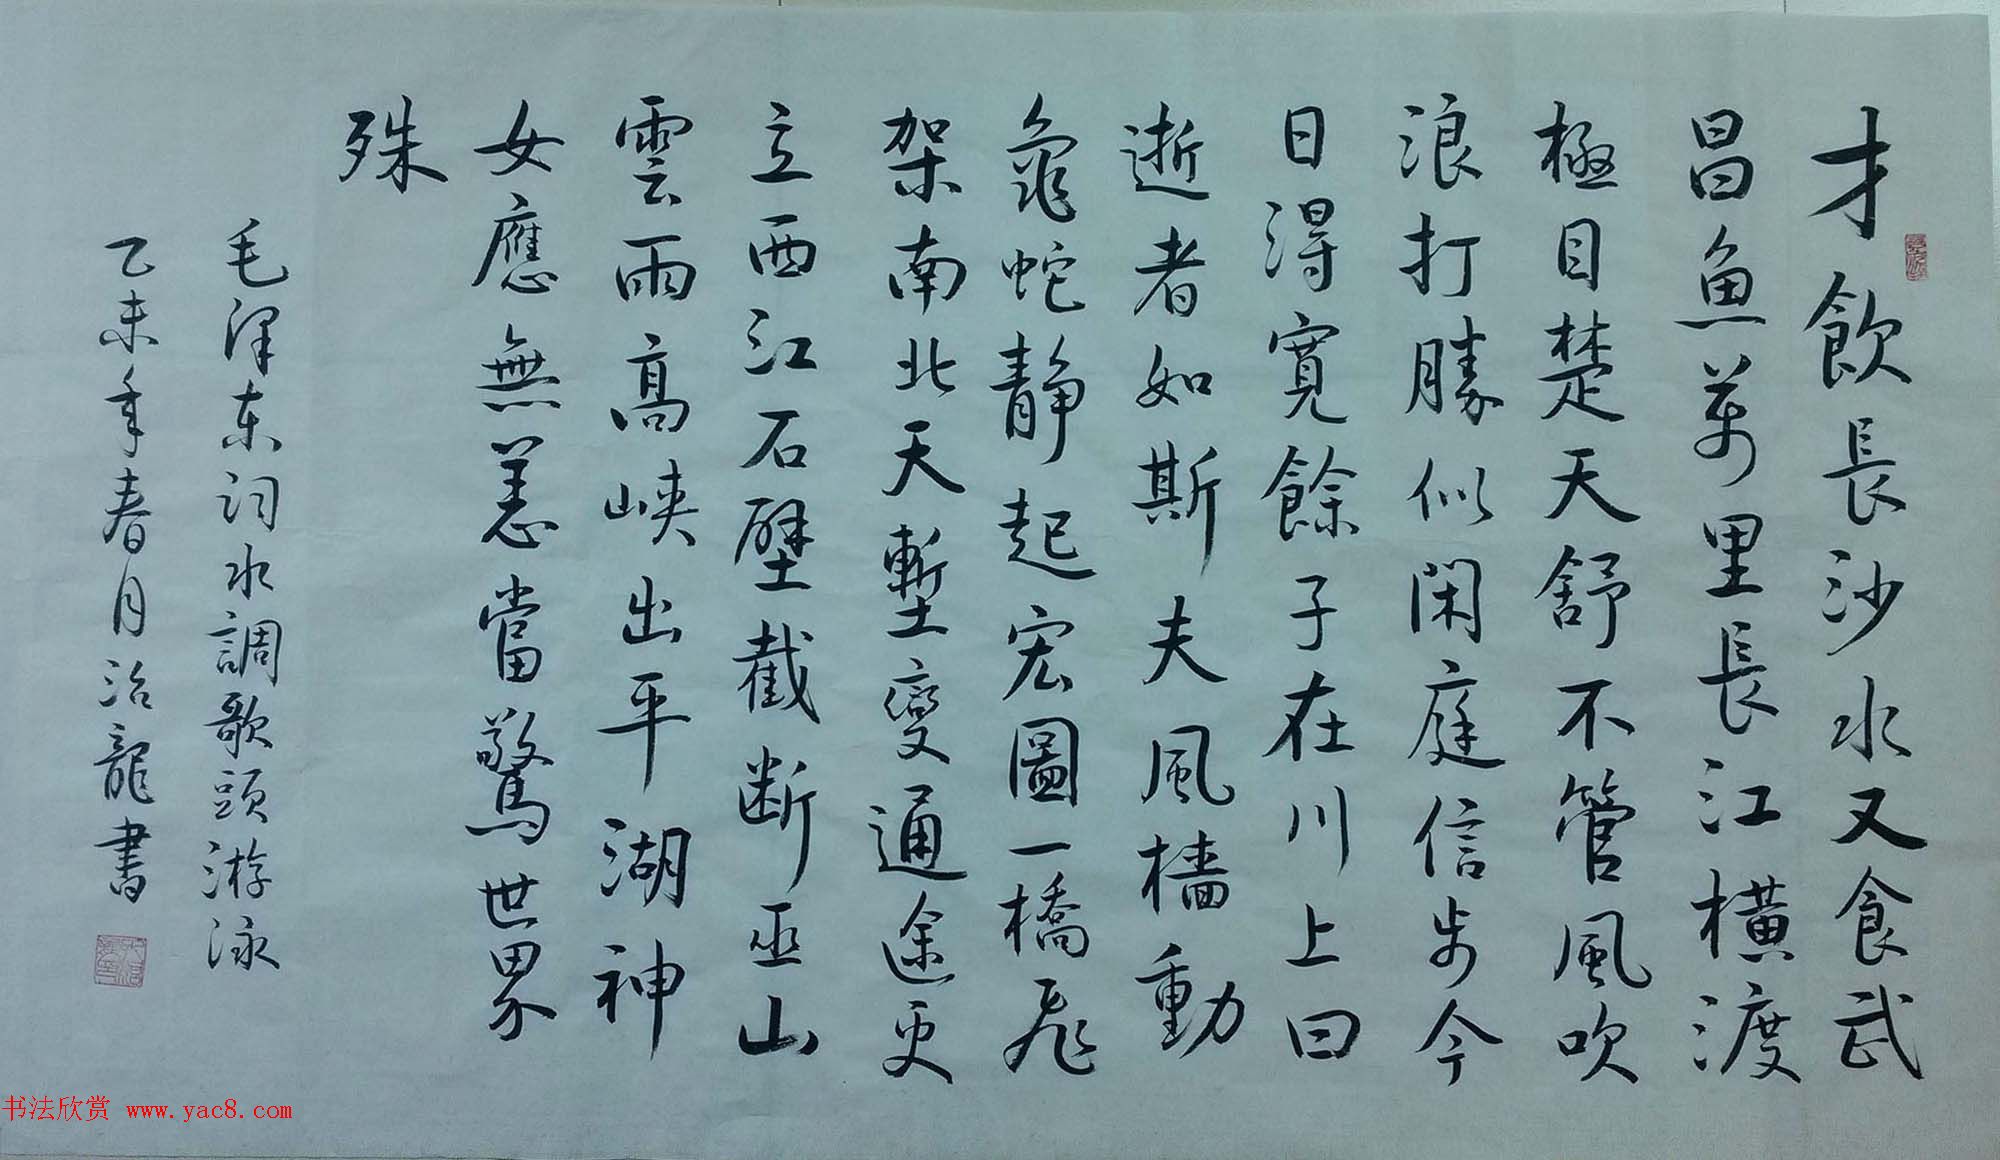 才飲長沙水又食武
昌魚萬里長江橫渡
極目楚天舒不管風吹
浪打勝似閑庭信步今
日得寬餘子在川上曰
逝者如斯夫風檣動
龜蛇靜起宏圖一橋飛
架南北天塹變通途更
立西江石壁截斷巫山
雲雨高峽出平湖神
女應無恙當驚世界
殊
毛澤东词水調歌頭游泳
乙未年春月治龍書
书法欣赏 www.yac8.com